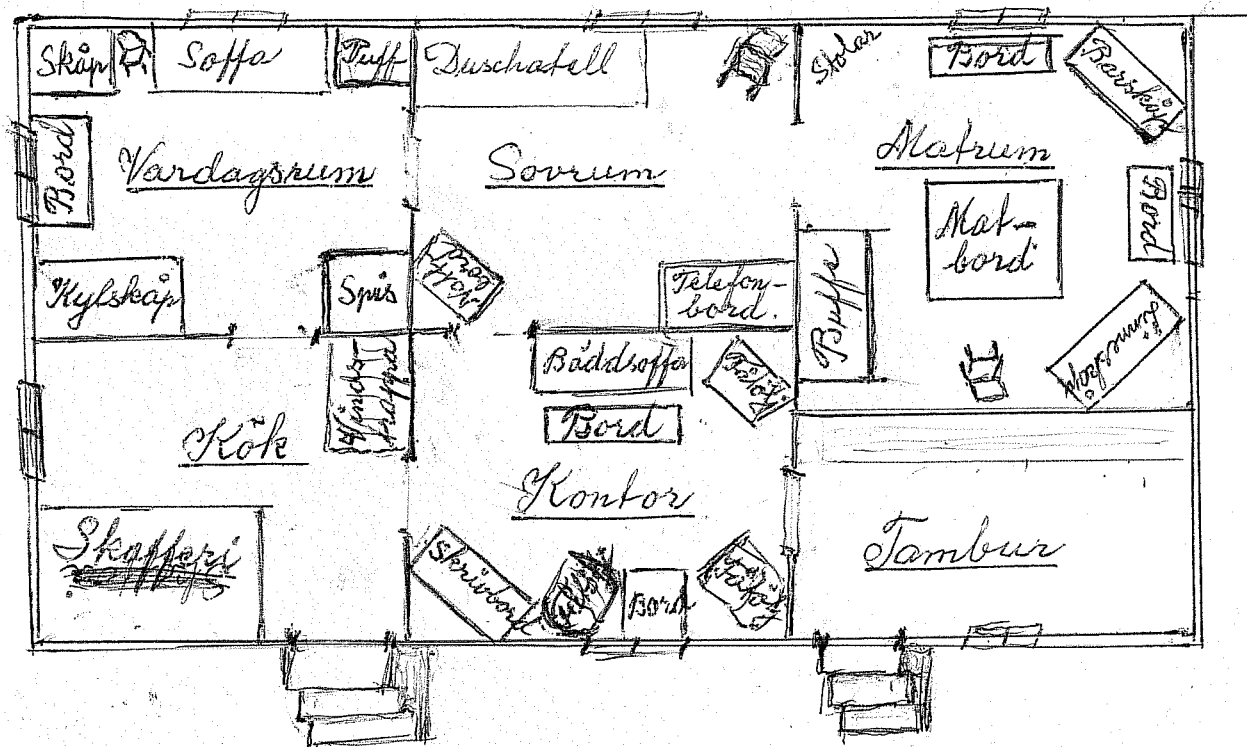 Skåp
Soffa
Puff
Duschatell
Stolar
Bord
Barskåp
Bord
Vardagsrum
Sovrum
Matrum
Bord
Mat-
bord
Kylskåp
Spis
Natt
bord
Telefon-
bord.
Buffe
Linneskåp
Vinds-
trappa
Bäddsoffa
Fåtölj
Bord
Kök
Kontor
Skafferi
Skrivbord
Bord
Fåtölj
Tambur